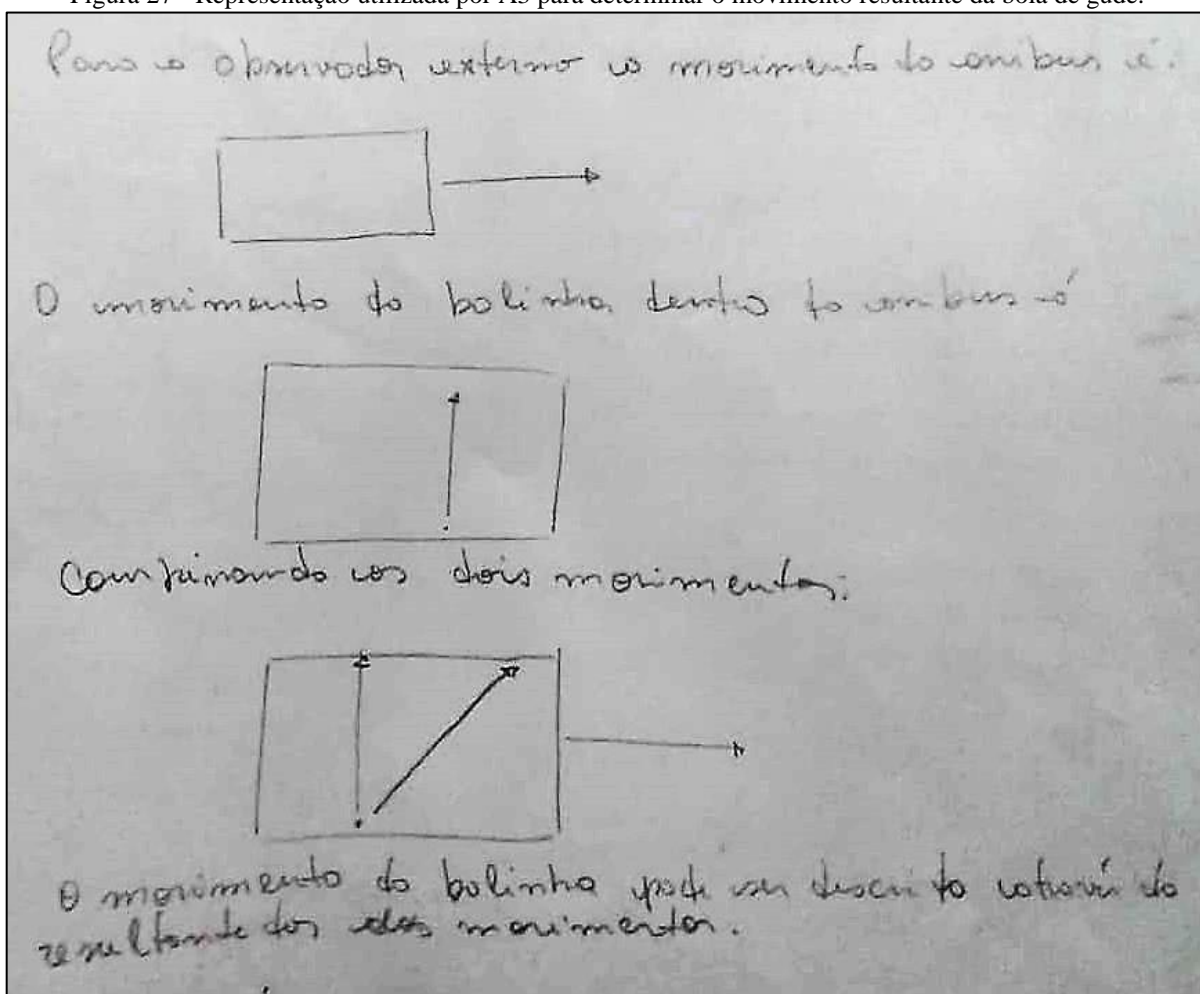 Figura 27 - Representação utilizada por A3 para determinar o movimento resultante da bola de gude.
Para o observador externo o movimento do onibus é:
O movimento da bolinha dentro do onibus é
Combinando os dois movimentos:
O movimento da bolinha pode ser descrito através da
resultante dos movimentos.